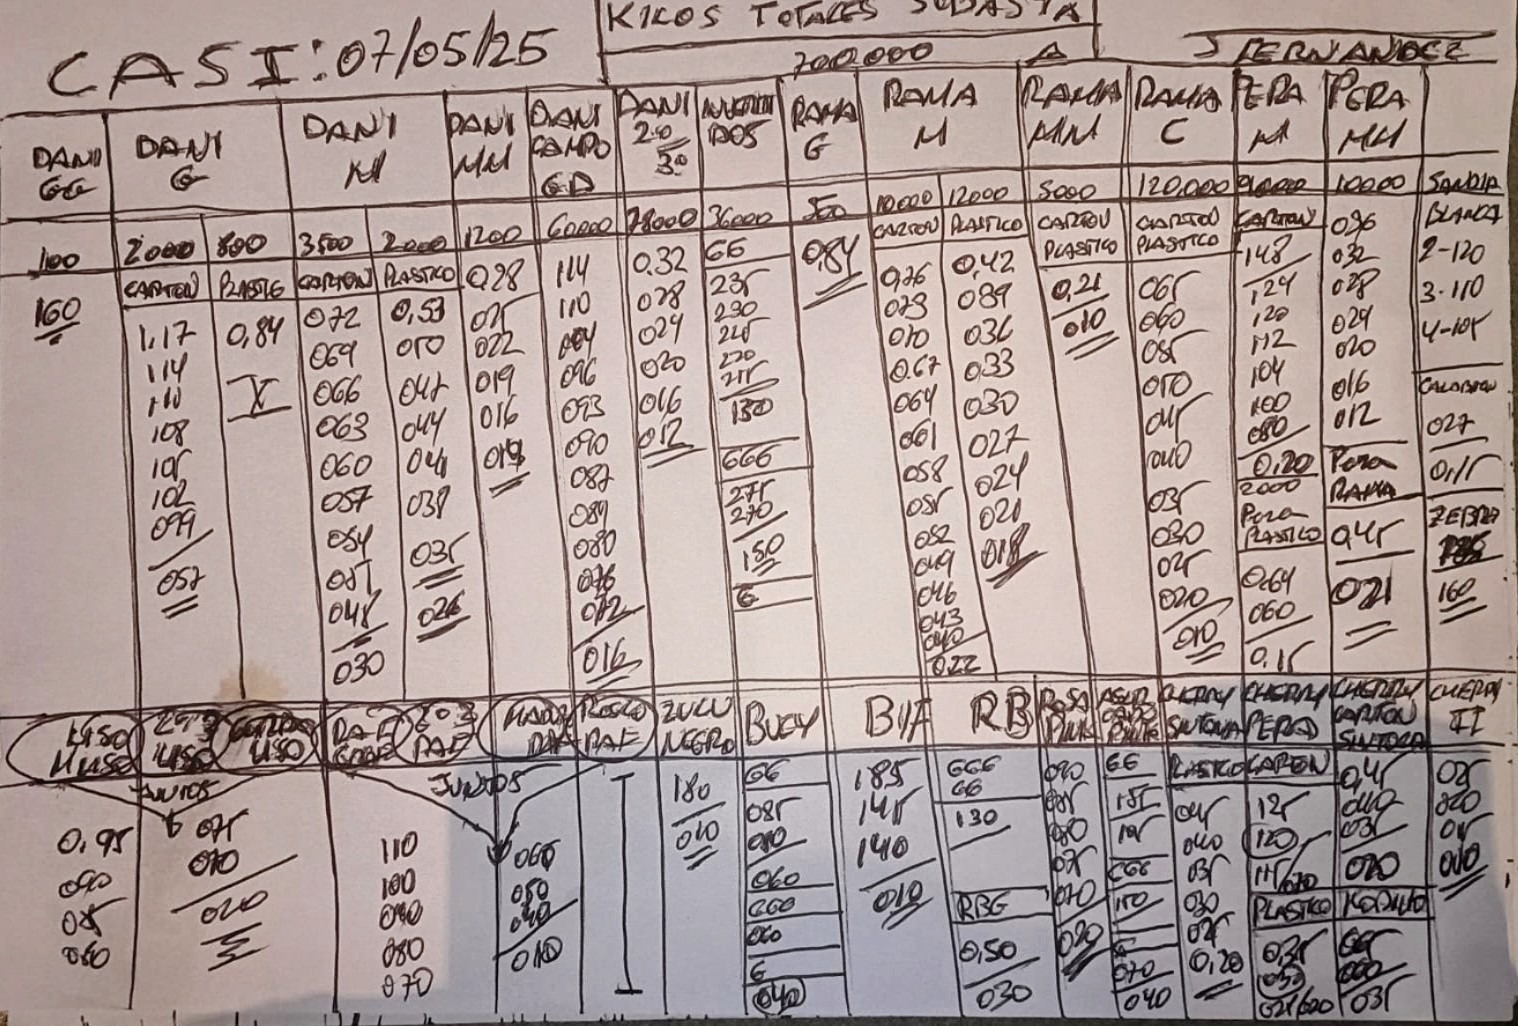 KILOS TOTALES SUBASTA
CASI: 07/05/25
700.000 A
J FERNANDEZ
DANI GG
DANI G
DANI M
DANI MM
DANI CAMPO
DANI 2.0 3.0
RAMA G
RAMA M
RAMA MM
RAMA C
PERA M
PERA MM
100
2000
800
3500
2000
1200
60000
78000
36000
500
10.000
12000
5000
120.000
10000
SANDIA
CARTON
PLASTICO
CARTON
PLASTICO
CARTON
PLASTICO
CARTON
PLASTICO
CARTON
PLASTICO
CARTON
BLANCA
160
1,17
114
110
108
105
102
099
057
0,84
X
072
069
066
063
060
057
054
051
048
030
0,53
050
047
044
041
038
035
026
0,28
025
022
019
016
114
110
104
096
093
090
087
084
080
076
072
016
0.32
028
024
020
016
012
GG
235
230
225
220
215
130
GGG
275
270
150
G
0,84
0,76
073
070
0.67
064
061
058
055
052
049
046
043
040
0.22
0,42
039
036
0.33
030
027
024
021
018
0,21
010
065
060
055
050
045
040
035
030
025
020
010
148
124
120
112
104
100
080
0,20
2000
PERA
PLASTICO
0.64
060
0,15
036
032
028
024
020
016
012
PERA
RAMA
0,45
021
2-120
3-110
4-105
CALABAZIN
027
0,15
ZEBRA
160
LISO
ZULU
NEGRO
BUEY
BIF
RB
ROSA
PINK
CHERRY
SINTONIA
CHERRY
PERA
CHERRY
CARTON
SINTORA
CHERRY
II
JUNTOS
JUNTOS
0,95
090
085
080
075
070
020
110
100
090
080
070
060
050
040
010
180
010
GG
085
080
060
GGG
060
G
040
185
145
140
010
GGG
GG
130
RBG
0,50
030
090
085
080
075
070
020
GG
155
GGG
150
G
070
040
PLASTICO
045
040
035
030
025
0,20
CARTON
125
120
115/020
PLASTICO
0,35
0,45
040
035
020
035
025
020
015
010